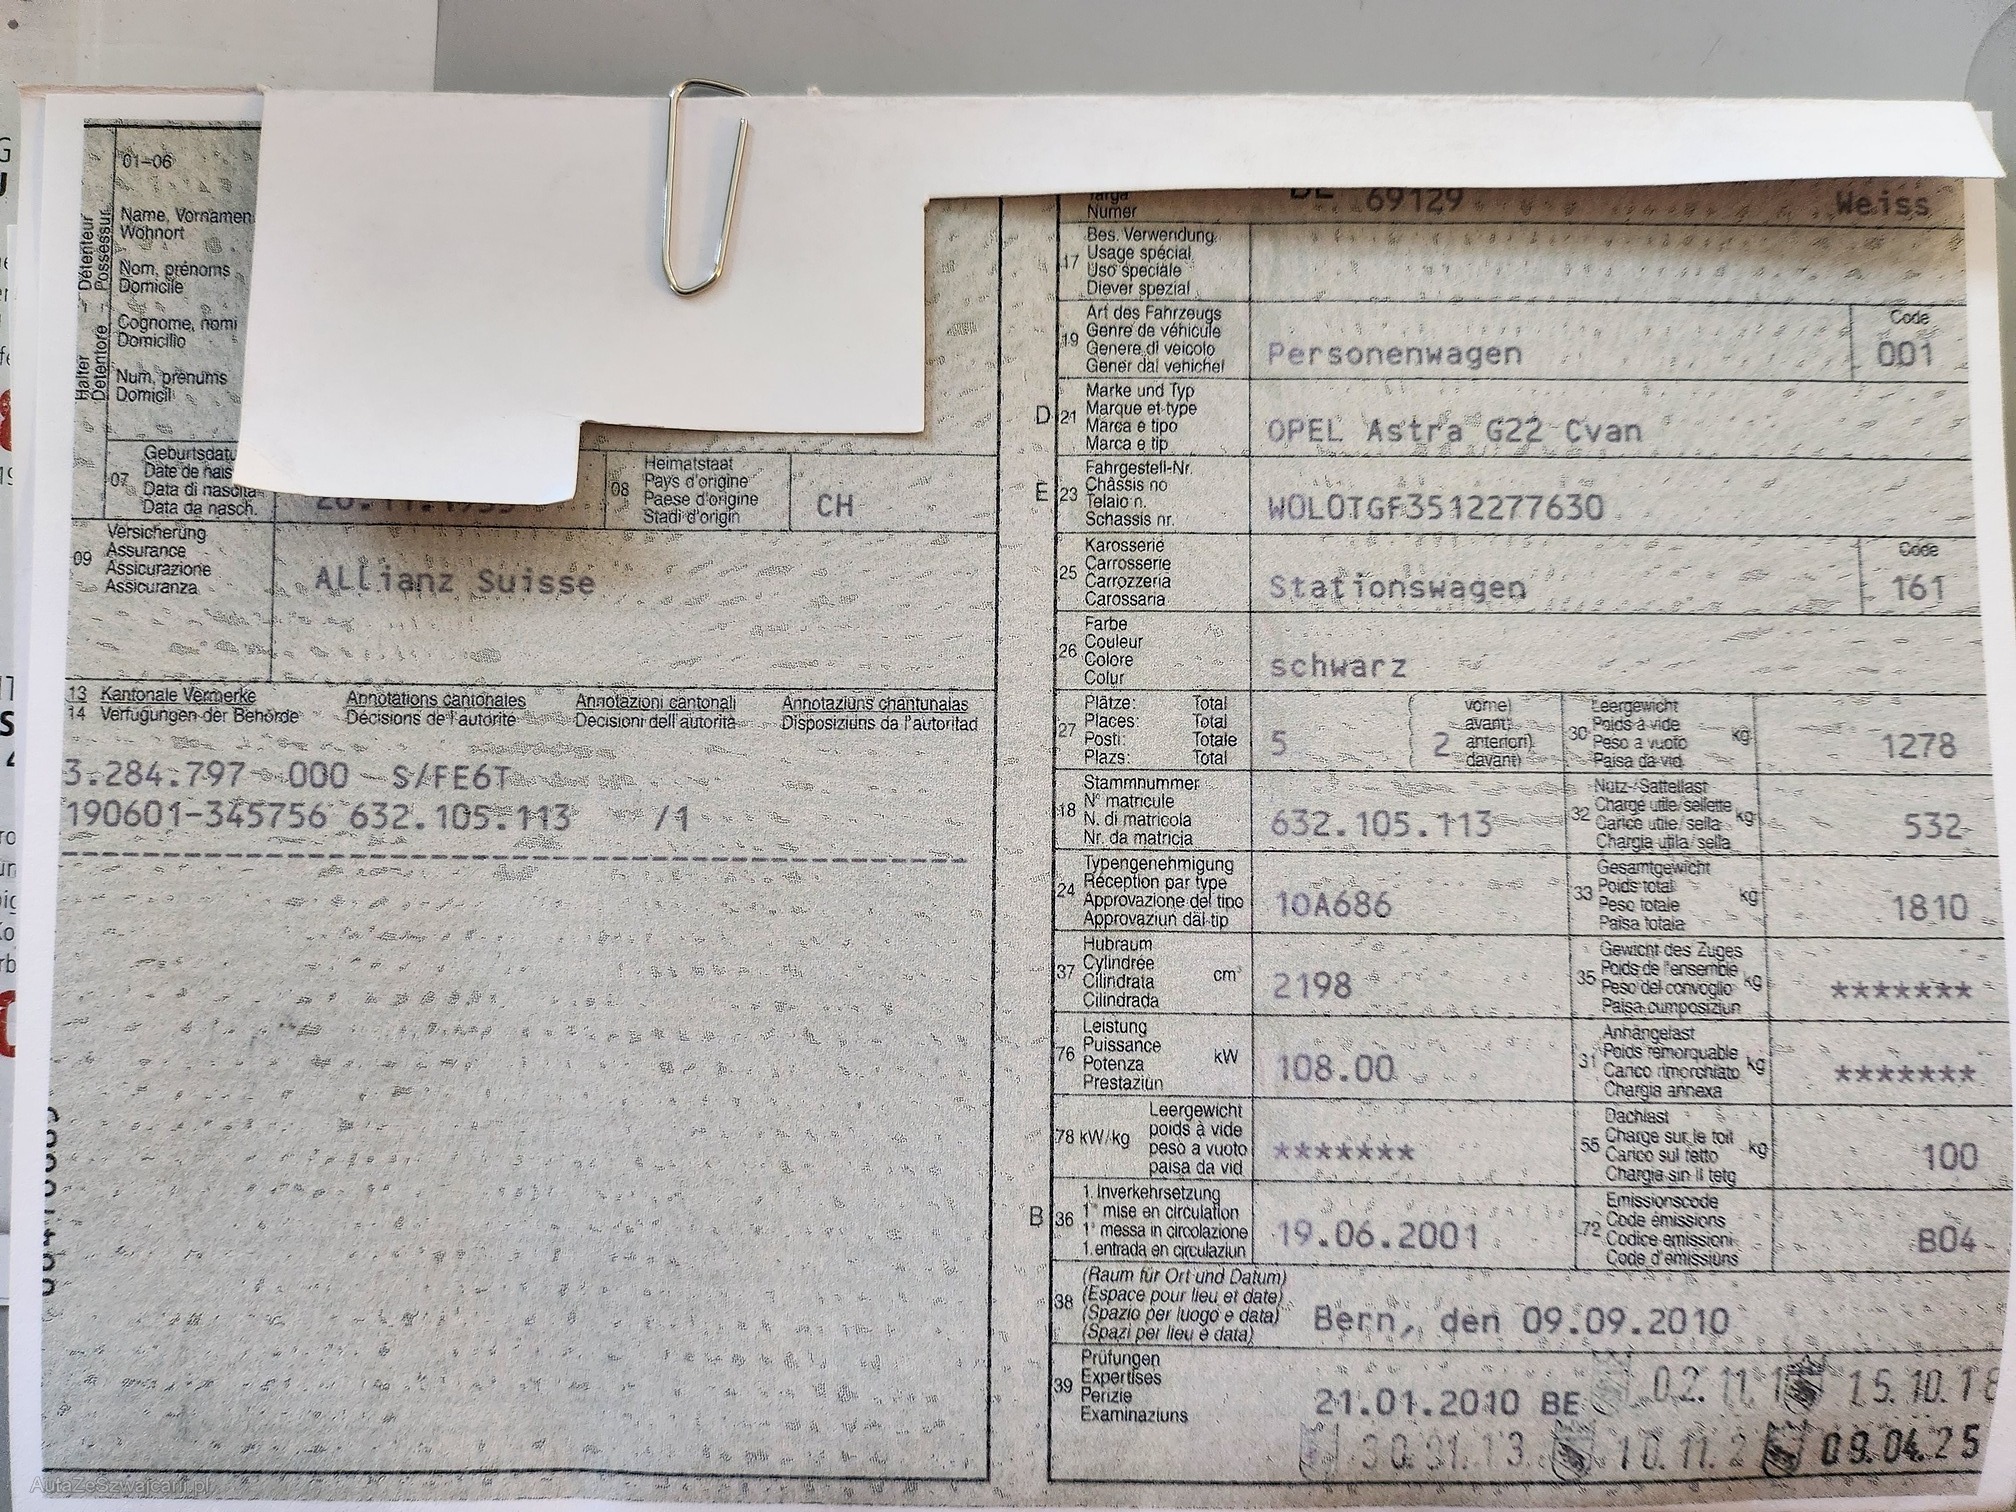 01-06
Halter Détenteur
Detentore Possessur
Name, Vornamen
Wohnort
Nom, prénoms
Domicile
Cognome, nomi
Domicilio
Num, prenums
Domicil
07
Data di nascita
Data da nasch.
08 Heimatstaat
Pays d'origine
Paese d'origine
Stadi d'origin
CH
09 Versicherung
Assurance
Assicurazione
Assicuranza
Allianz Suisse
13 Kantonale Vermerke Annotations cantonales Annotazioni cantonali Annotaziuns chantunalas
14 Verfügungen der Behörde Décisions de l'autorité Decisioni dell'autorità Disposiziuns da l'autoritad
3.284.797 000 S/FE6T
190601-345756 632.105.113 /1
Numer
69129 Weiss
17 Bes. Verwendung
Usage spécial
Uso speciale
Diever spezial
19 Art des Fahrzeugs
Genre de véhicule
Genere di veicolo
Gener dal vehichel
Personenwagen
Code
001
D 21 Marke und Typ
Marque et type
Marca e tipo
Marca e tip
OPEL Astra G22 Cvan
E 23 Fahrgestell-Nr.
Châssis no
Telaio n.
Schassis nr.
WOLOTGF3512277630
25 Karosserie
Carrosserie
Carrozzeria
Carossaria
Stationswagen
Code
161
26 Farbe
Couleur
Colore
Colur
schwarz
27 Plätze: Total
Places: Total
Posti: Totale
Plazs: Total
5
2
vorne)
avant)
anteriori)
davant)
30 Leergewicht
Poids à vide
Peso a vuoto
Paisa da vid
kg
1278
18 Stammnummer
N° matricule
N. di matricola
Nr. da matricla
632.105.113
32 Nutz-/Sattellast
Charge utile/sellette
Carico utile/sella
Chargia utila/sella
kg
532
24 Typengenehmigung
Réception par type
Approvazione del tipo
Approvaziun dal tip
10A686
33 Gesamtgewicht
Poids total
Peso totale
Paisa totala
kg
1810
37 Hubraum
Cylindrée
Cilindrata
Cilindrada
cm³
2198
35 Gewicht des Zuges
Poids de l'ensemble
Peso del convoglio
Paisa cumposiziun
kg
*******
76 Leistung
Puissance
Potenza
Prestaziun
kW
108.00
31 Anhängelast
Poids remorquable
Carico rimorchiato
Chargia annexa
kg
*******
78 kW/kg
Leergewicht
poids à vide
peso a vuoto
paisa da vid
*******
55 Dachlast
Charge sur le toit
Carico sul tetto
Chargia sin il tetg
kg
100
B 36 1. Inverkehrsetzung
1re mise en circulation
1a messa in circolazione
1. entrada en circulaziun
19.06.2001
72 Emissionscode
Code émissions
Codice emissioni
Code d'emissiuns
B04
38 (Raum für Ort und Datum)
(Espace pour lieu et date)
(Spazio per luogo e data)
(Spazi per lieu e data)
Bern, den 09.09.2010
39 Prüfungen
Expertises
Perizie
Examinaziuns
21.01.2010 BE
09.04.25
AutaZeSzwajcarii.pl